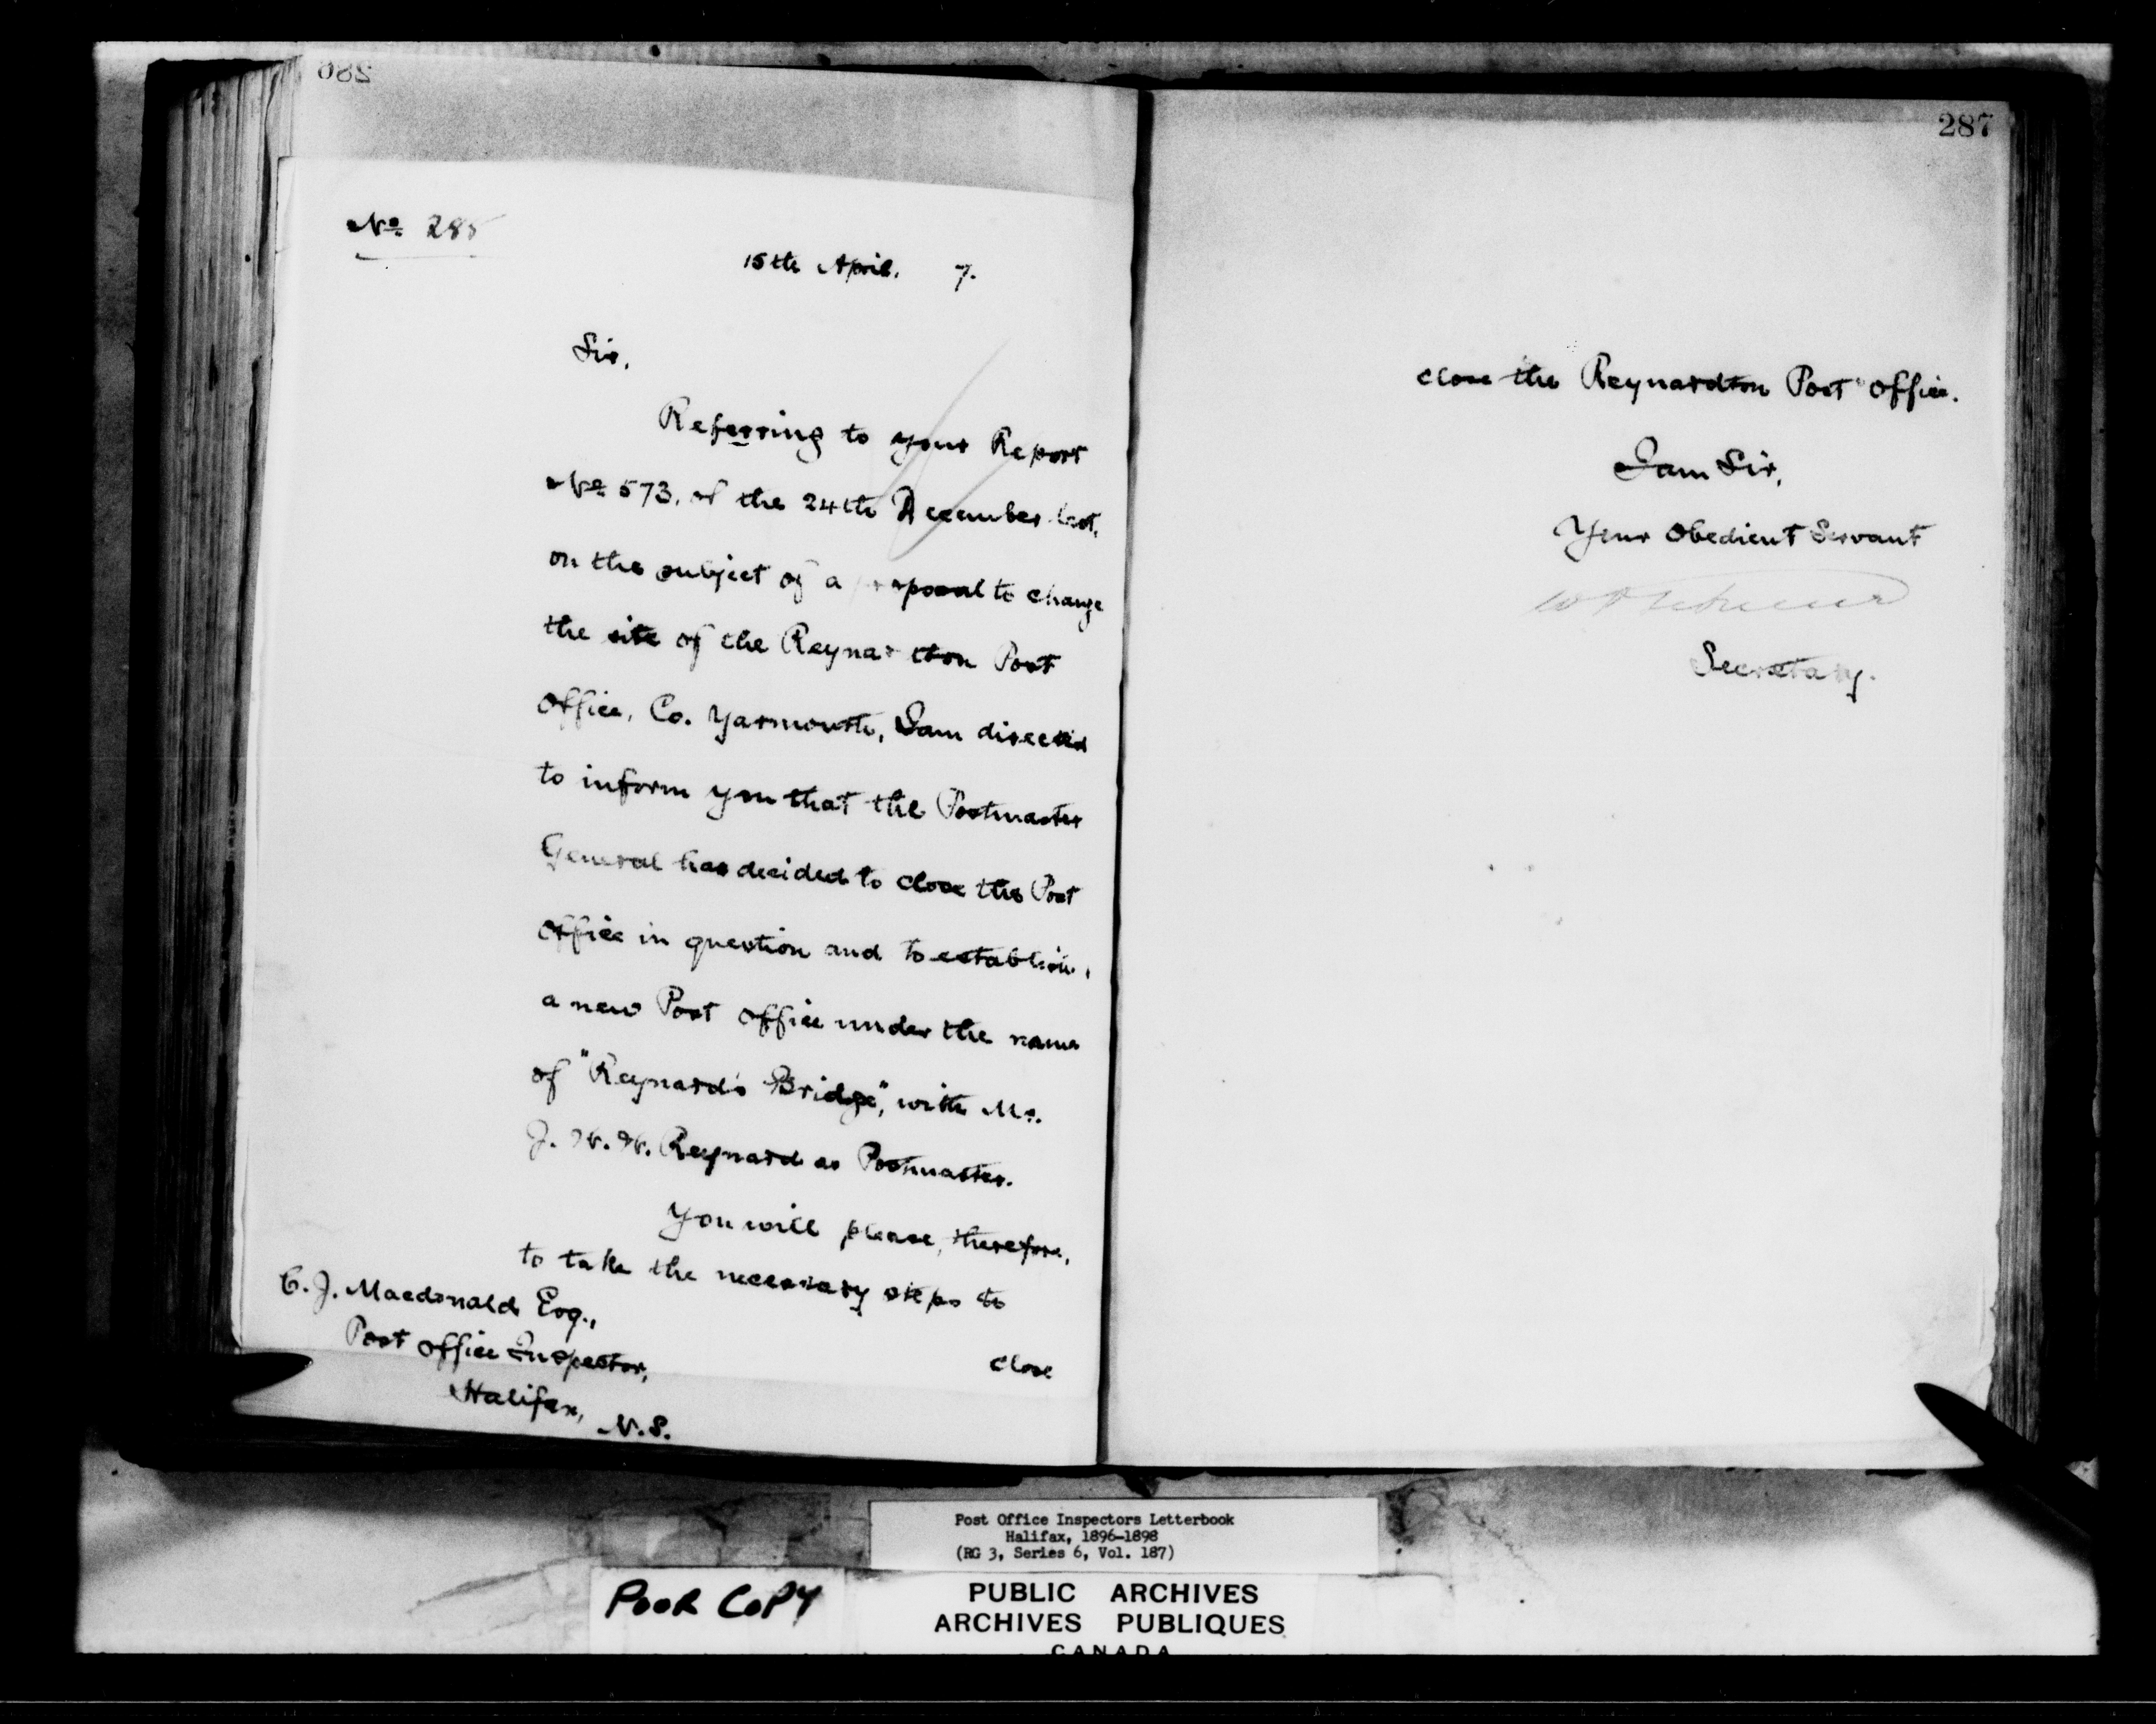 286
No 285
15th April. 7.
Sir,
Referring to your Report
No 573, of the 24th December last,
on the subject of a proposal to change
the site of the Reynardton Post
Office, Co. Yarmouth, I am directed
to inform you that the Postmaster
General has decided to close the Post
Office in question and to establish,
a new Post Office under the name
of "Reynard's Bridge", with Mr.
J. W. W. Reynard as Postmaster.
You will please, therefore,
to take the necessary steps to
close
C. J. Macdonald Esq.,
Post Office Inspector,
Halifax,
N.S.
287
close the Reynardton Post Office.
I am Sir,
Your Obedient Servant
Secretary.
Post Office Inspectors Letterbook
Halifax, 1896-1898
(RG 3, Series 6, Vol. 187)
POOR COPY
PUBLIC ARCHIVES
ARCHIVES PUBLIQUES
CANADA